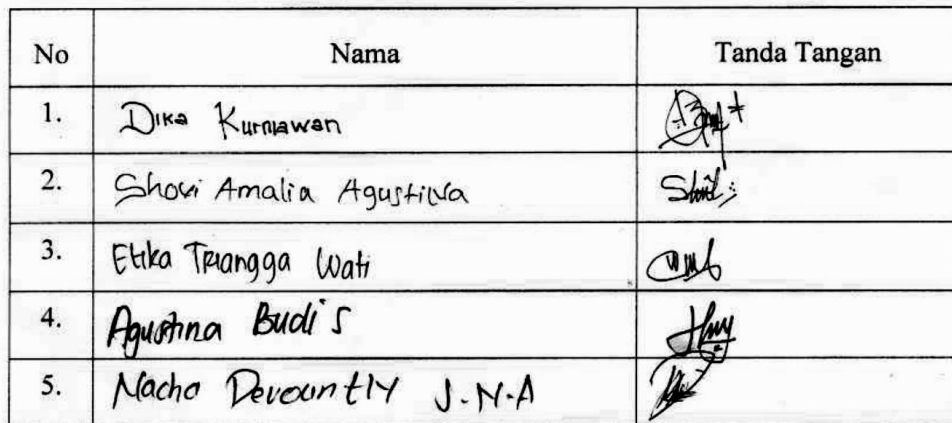 No Nama Tanda Tangan
1. Dika Kurniawan
2. Shovi Amalia Agustina
3. Etika Triangga Wati
4. Agustina Budi S
5. Nacho J.N.A